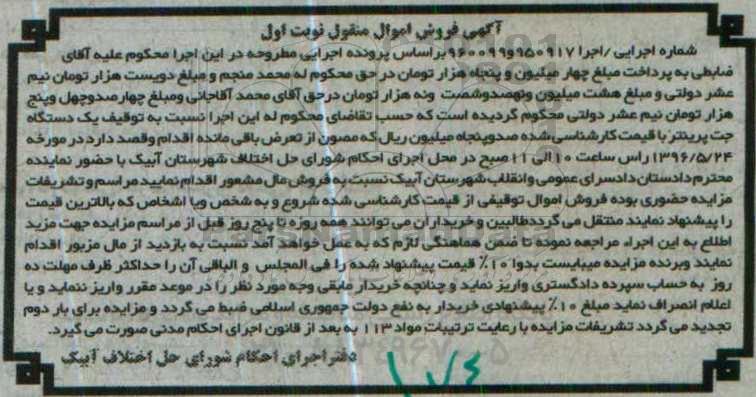 آگهی فروش اموال منقول نوبت اول
شماره اجرایی /اجرا ۹۵۰۹۱۷و۹۶۰۰۹۹ براساس پرونده اجرایی مطروحه در این اجرا محکوم علیه آقای
ضابطی به پرداخت مبلغ چهار میلیون و پنجاه هزار تومان در حق محکوم له محمد منجم و مبلغ دویست هزار تومان نیم
عشر دولتی و مبلغ هشت میلیون ونهصدوشصت ونه هزار تومان درحق آقای محمد آقاجانی ومبلغ چهارصدوچهل وپنج
هزار تومان نیم عشر دولتی محکوم گردیده است که حسب تقاضای محکوم له این اجرا نسبت به توقیف یک دستگاه
جت پرینتر با قیمت کارشناسی شده صدوپنجاه میلیون ریال که مصون از تعرض باقی مانده اقدام وقصد دارد در مورخه
۱۳۹۶/۵/۲۴ راس ساعت ۱۰الی ۱۱ صبح در محل اجرای احکام شورای حل اختلاف شهرستان آبیک با حضور نماینده
محترم دادستان دادسرای عمومی وانقلاب شهرستان آبیک نسبت به فروش مال مشعور اقدام نمایید مراسم و تشریفات
مزایده حضوری بوده فروش اموال توقیفی از قیمت کارشناسی شده شروع و به شخص ویا اشخاص که بالاترین قیمت
را پیشنهاد نمایند منتقل می گردد طالبین و خریداران می توانند همه روزه تا پنج روز قبل از مراسم مزایده جهت مزید
اطلاع به این اجراء مراجعه نموده تا ضمن هماهنگی لازم که به عمل خواهد آمد نسبت به بازدید از مال مزبور اقدام
نمایند وبرنده مزایده میبایست بدوا ۱۰٪ قیمت پیشنهاد شده را فی المجلس و الباقی آن را حداکثر ظرف مهلت ده
روز به حساب سپرده دادگستری واریز نماید و چنانچه خریدار مابقی وجه مورد نظر را در موعد مقرر واریز ننماید و یا
اعلام انصراف نماید مبلغ ۱۰٪ پیشنهادی خریدار به نفع دولت جمهوری اسلامی ضبط می گردد و مزایده برای بار دوم
تجدید می گردد تشریفات مزایده با رعایت ترتیبات مواد ۱۱۳ به بعد از قانون اجرای احکام مدنی صورت می گیرد.
دفتر اجرای احکام شورای حل اختلاف آبیک
۱۷۴